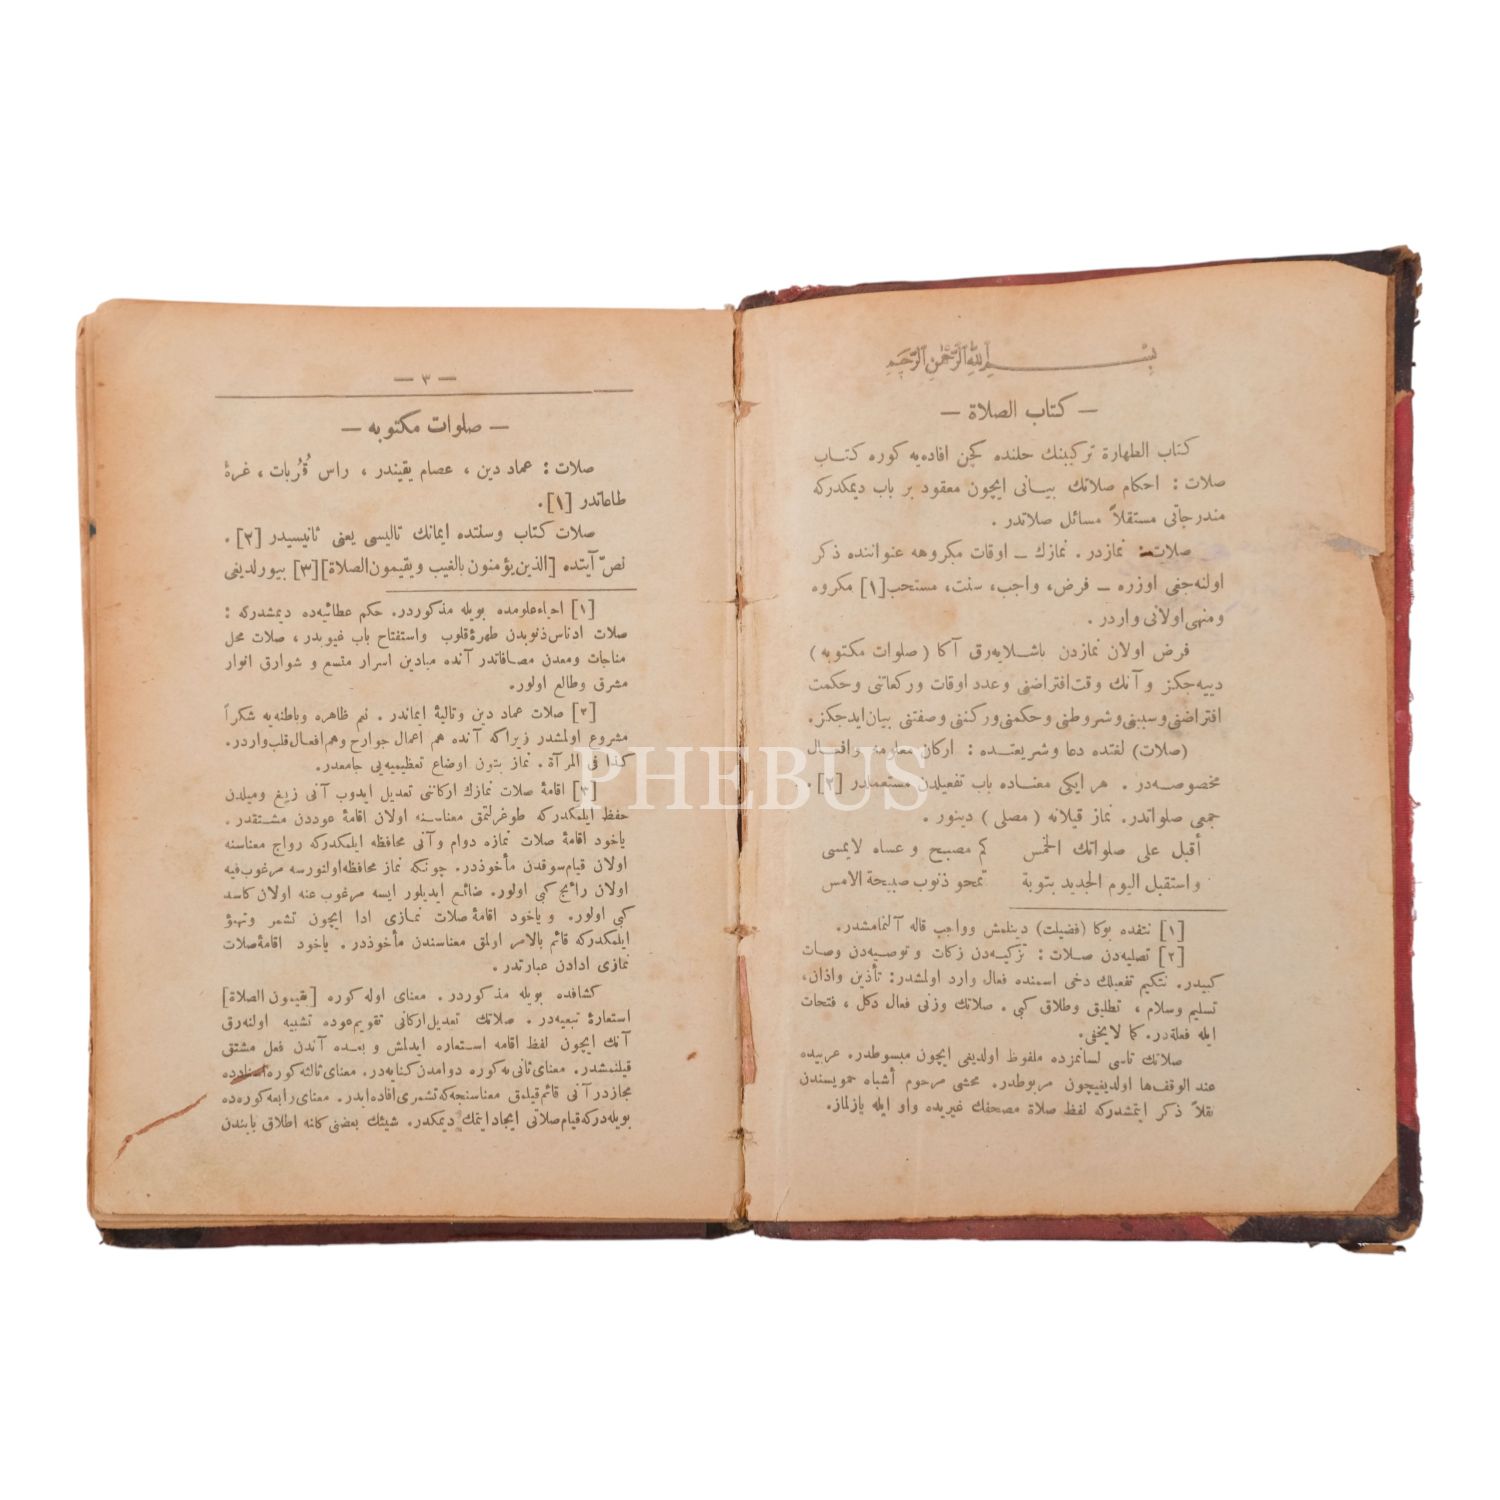 بسم الله الرحمن الرحيم
— كتاب الصلاة —
كتاب الطهارة تركيبنك حلنده كچن افاده‌يه كوره كتاب
صلات : احكام صلاتك بيانى ايچون معقود بر باب ديمكدركه
مندرجاتى مستقلاً مسائل صلاتدر .
صلات : نمازدر . نمازك — اوقات مكروهه عنواننده ذكر
اولنه‌جغى اوزره — فرض، واجب، سنت، مستحب [١] مكروه
ومنهى اولانى واردر .
فرض اولان نمازدن باشلايه‌رق آكا ( صلوات مكتوبه )
دييه‌جكز و آنك وقت افتراضنى وعدد اوقات وركعاتنى وحكمت
افتراضنى وسببنى وشروطنى وحكمنى وركننى وصفتنى بيان ايدجكز.
(صلات) لغتده دعا وشريعتده : اركان معلومه وافعال
مخصوصه‌در . هر ايكى معناده باب تفعيلدن مستعملدر [٢] .
جمعى صلواتدر. نماز قيلانه ( مصلى ) دينور .
أقبل على صلواتك الخمس كم مصبح وعساه لايمسى
واستقبل اليوم الجديد بتوبة تمحو ذنوب صبيحة الامس
[١] نتفده بوكا (فضيلت) دينلمش وواجب قاله آلنمامشدر.
[٢] تصليه‌دن صلات : تزكيه‌دن زكات و توصيه‌دن وصات
كبيدر. نتكيم تفعيلك دخى اسمنده فعال وارد اولمشدر: تأذين واذان،
تسليم وسلام ، تطليق وطلاق كبى . صلاتك وزنى فعال دكل ، فتحات
ايله فعلةدر. كما لايخفى.
صلاتك تاسى لسانمزده ملفوظ اولديغى ايچون مبسوطدر. عربيده
عند الوقف ها اولديغيچون مربوطدر. محشى مرحوم أشباه حمويسندن
نقلاً ذكر ايتمشدركه لفظ صلاة مصحفك غيريده واو ايله يازلماز.
— ٣ —
— صلوات مكتوبه —
صلات : عماد دين ، عصام يقيندر ، راس قُرُبات ، غرۀ
طاعاتدر [١].
صلات كتاب وسنتده ايمانك تاليسى يعنى ثانيسيدر [٢] .
نصّ آيتده [الذين يؤمنون بالغيب ويقيمون الصلاة] [٣] بيورلديغى
[١] احياء علومده بويله مذكوردر. حكم عطائيه‌ده ديمشدركه :
صلات ادناس ذنوبدن طهرۀ قلوب واستفتاح باب غيوبدر ، صلات محل
مناجات ومعدن مصافاتدر آنده مبادين اسرار متسع و شوارق انوار
مشرق وطالع اولور.
[٢] صلات عماد دين وتاليۀ ايماندر . نعم ظاهره وباطنه‌يه شكراً
مشروع اولمشدر زيراكه آنده هم اعمال جوارح وهم افعال قلب واردر.
كذا فى المرآة . نماز بتون اوضاع تعظيميه‌يى جامعدر.
[٣] اقامۀ صلات نمازك اركاننى تعديل ايدوب آنى زيغ وميلدن
حفظ ايلمكدركه طوغرلتمق معناسنه اولان اقامۀ عوددن مشتقدر .
ياخود اقامۀ صلات نمازه دوام وآنى محافظه ايلمكدركه رواج معناسنه
اولان قيام سوقدن مأخوذدر. چونكه نماز محافظه اولنورسه مرغوب فيه
اولان رائج كبى اولور. ضائع ايديلور ايسه مرغوب عنه اولان كاسد
كبى اولور. و ياخود اقامۀ صلات نمازى ادا ايچون تشمر وتهيؤ
ايلمكدركه قائم بالامر اولمق معناسندن مأخوذدر . ياخود اقامۀ صلات
نمازى ادادن عبارتدر .
كشافده بويله مذكوردر . معناى اوله كوره [يقيمون الصلاة]
استعارۀ تبعيه‌در . صلاتك تعديل اركانى تقويم عوده تشبيه اولنه‌رق
آنك ايچون لفظ اقامه استعاره ايدلمش و بعده آندن فعل مشتق
قيلنمشدر. معناى ثانى‌يه كوره دوامدن كنايه‌در. معناى ثالثه كوره اسنادده
مجازدر آنى قائم قيلدق معناسنجه كه تشمرى افاده ايدر. معناى رابعه كوره‌ده
بويله‌دركه قيام صلاتى ايجاد ايتمك ديمكدر. شيئك بعضى كلنه اطلاق بابندن